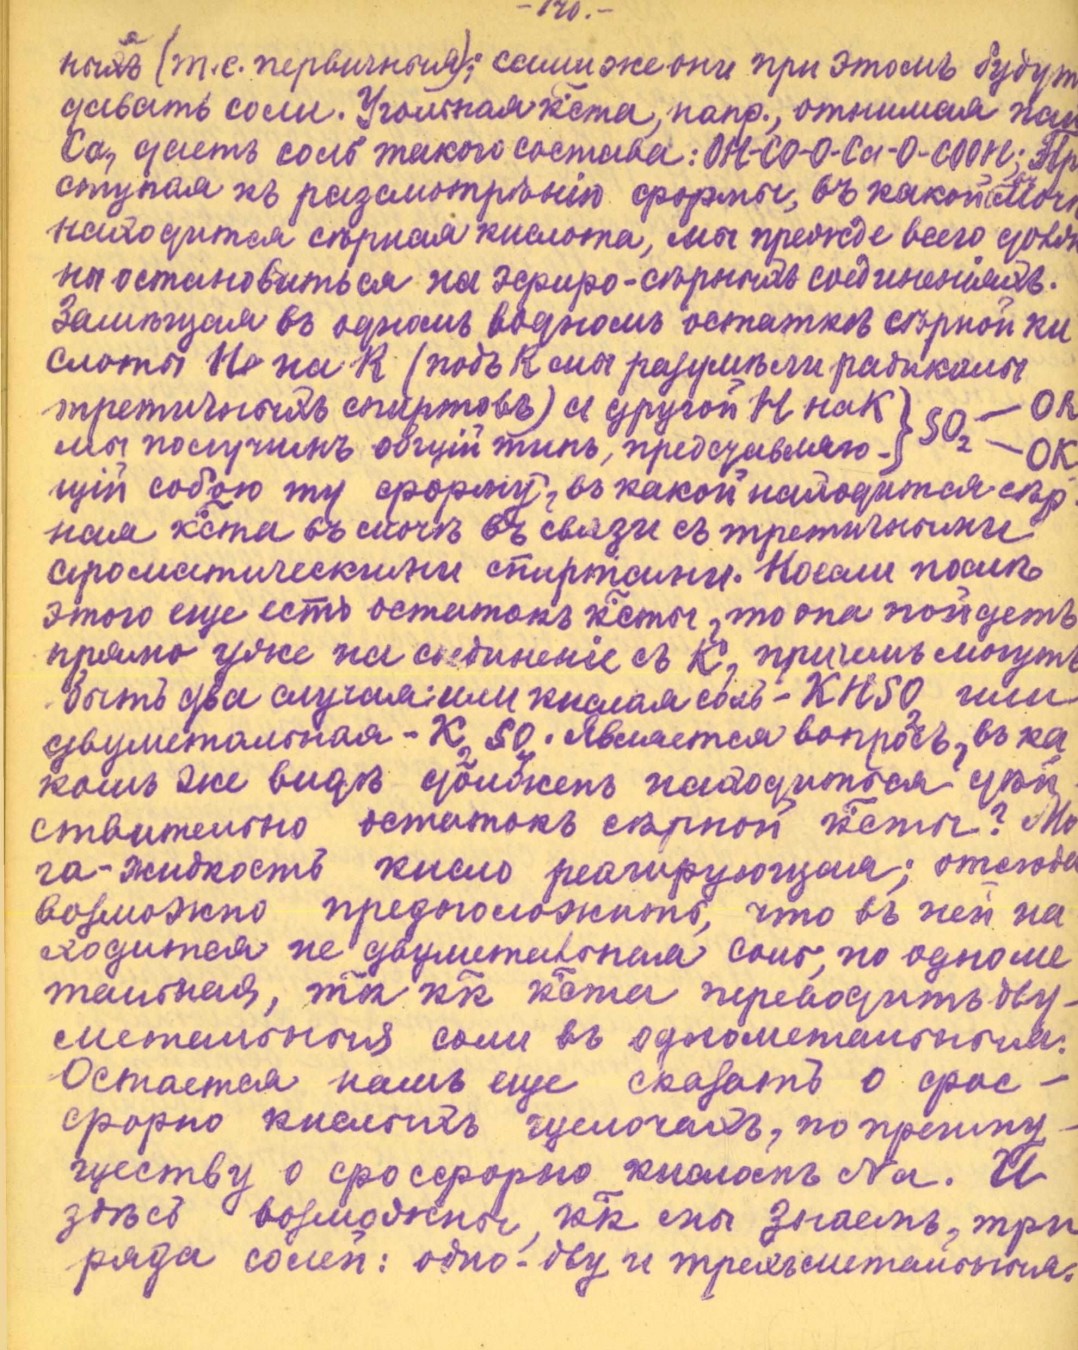 -140.-
ныя (т.е. первичныя); сами же они при этомъ будут
давать соли. Угольная к̅ста, напр., отнимая
Ca, даетъ соль такого состава: OH-CO-O-Ca-O-COOH; При
ступая къ разсмотрѣнію формы, въ какой въ Мочѣ
находится сѣрная кислота, мы прежде всего долж
ны остановиться на эфиро-сѣрныхъ соединеніяхъ.
Замѣщая въ одномъ водномъ остаткѣ сѣрной ки
слоты H на R (подъ R мы разумѣли радикалы
третичныхъ спиртовъ) а другой H на K } SO2 — OR
мы получимъ общій типъ, представляю- } — OK
щій собою ту форму, въ какой находится сѣр
ная к̅ста въ мочѣ въ связи съ третичными
ароматическими спиртами. Но если послѣ
этого еще есть остатокъ к̅сты, то она пойдетъ
прямо уже на соединеніе съ K, причемъ могутъ
быть два случая: или кислая соль - KHSO4 или
двуметальная - K2SO4. Является вопросъ, въ ка
комъ же видѣ долженъ находиться дѣй-
ствительно остатокъ сѣрной к̅сты? Мо
ча-жидкость кисло реагирующая; отсюда
возможно предположить, что въ ней на
ходится не двуметальная соль, но одноме
тальная, т̅к к̅к к̅ста переводитъ дву-
метальныя соли въ однометальныя.
Остается намъ еще сказать о фос-
форно кислыхъ щелочахъ, по преиму-
ществу о фосфорно кисломъ Na. И
здѣсь возможны, к̅к мы знаемъ, три
ряда солей: одно-дву и трехъметальныя.